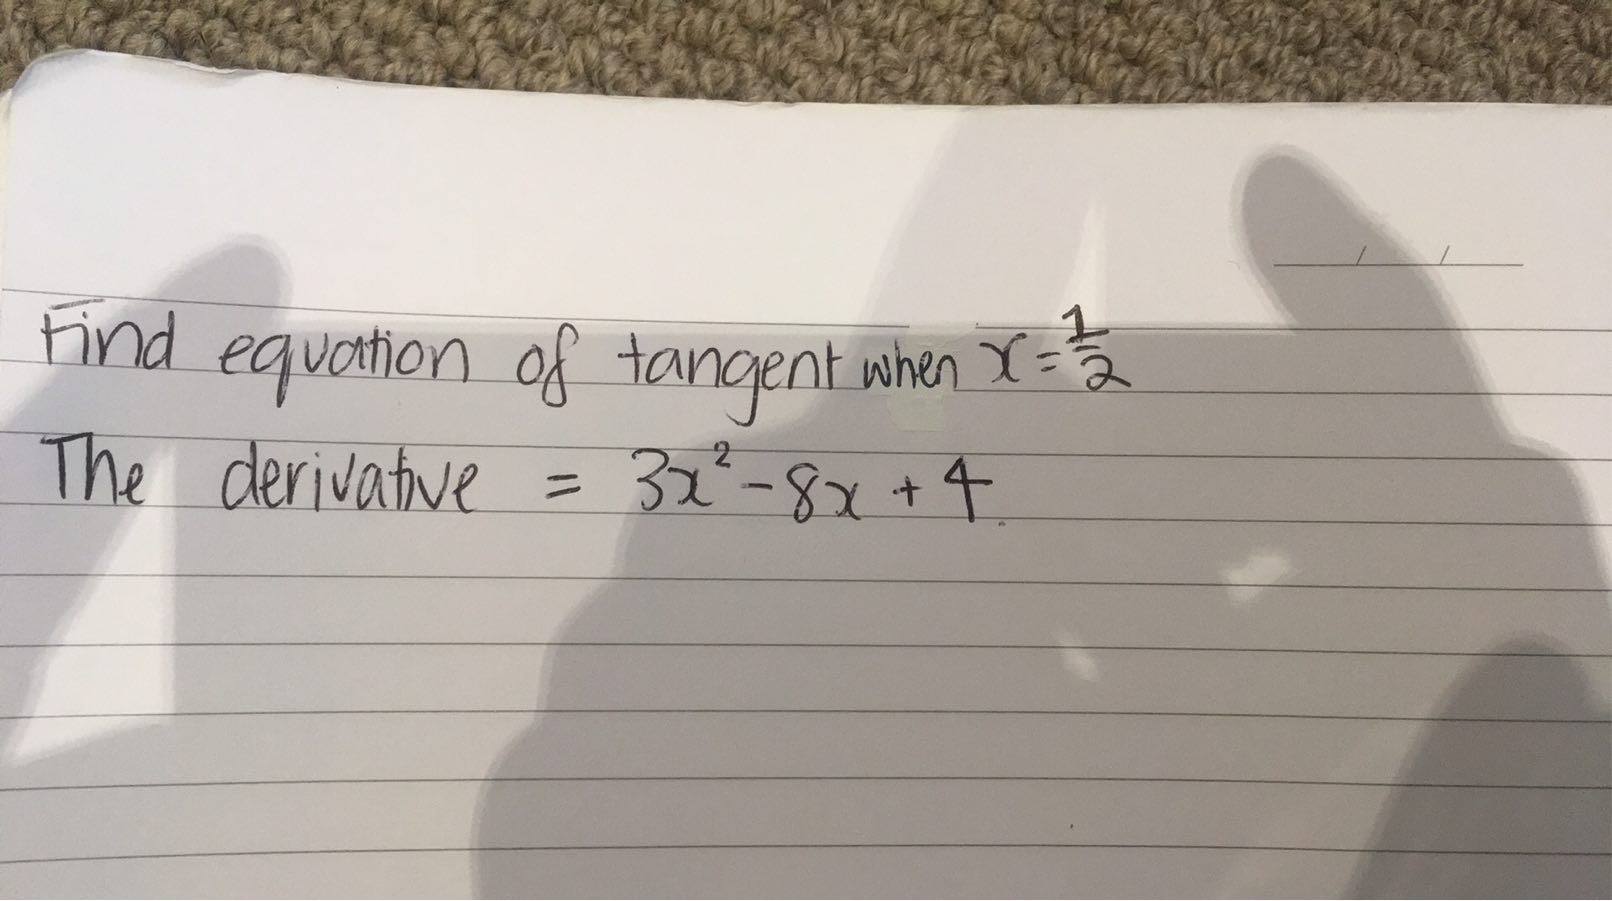 Find equation of tangent when x = 1/2
The derivative = 3x² - 8x + 4.